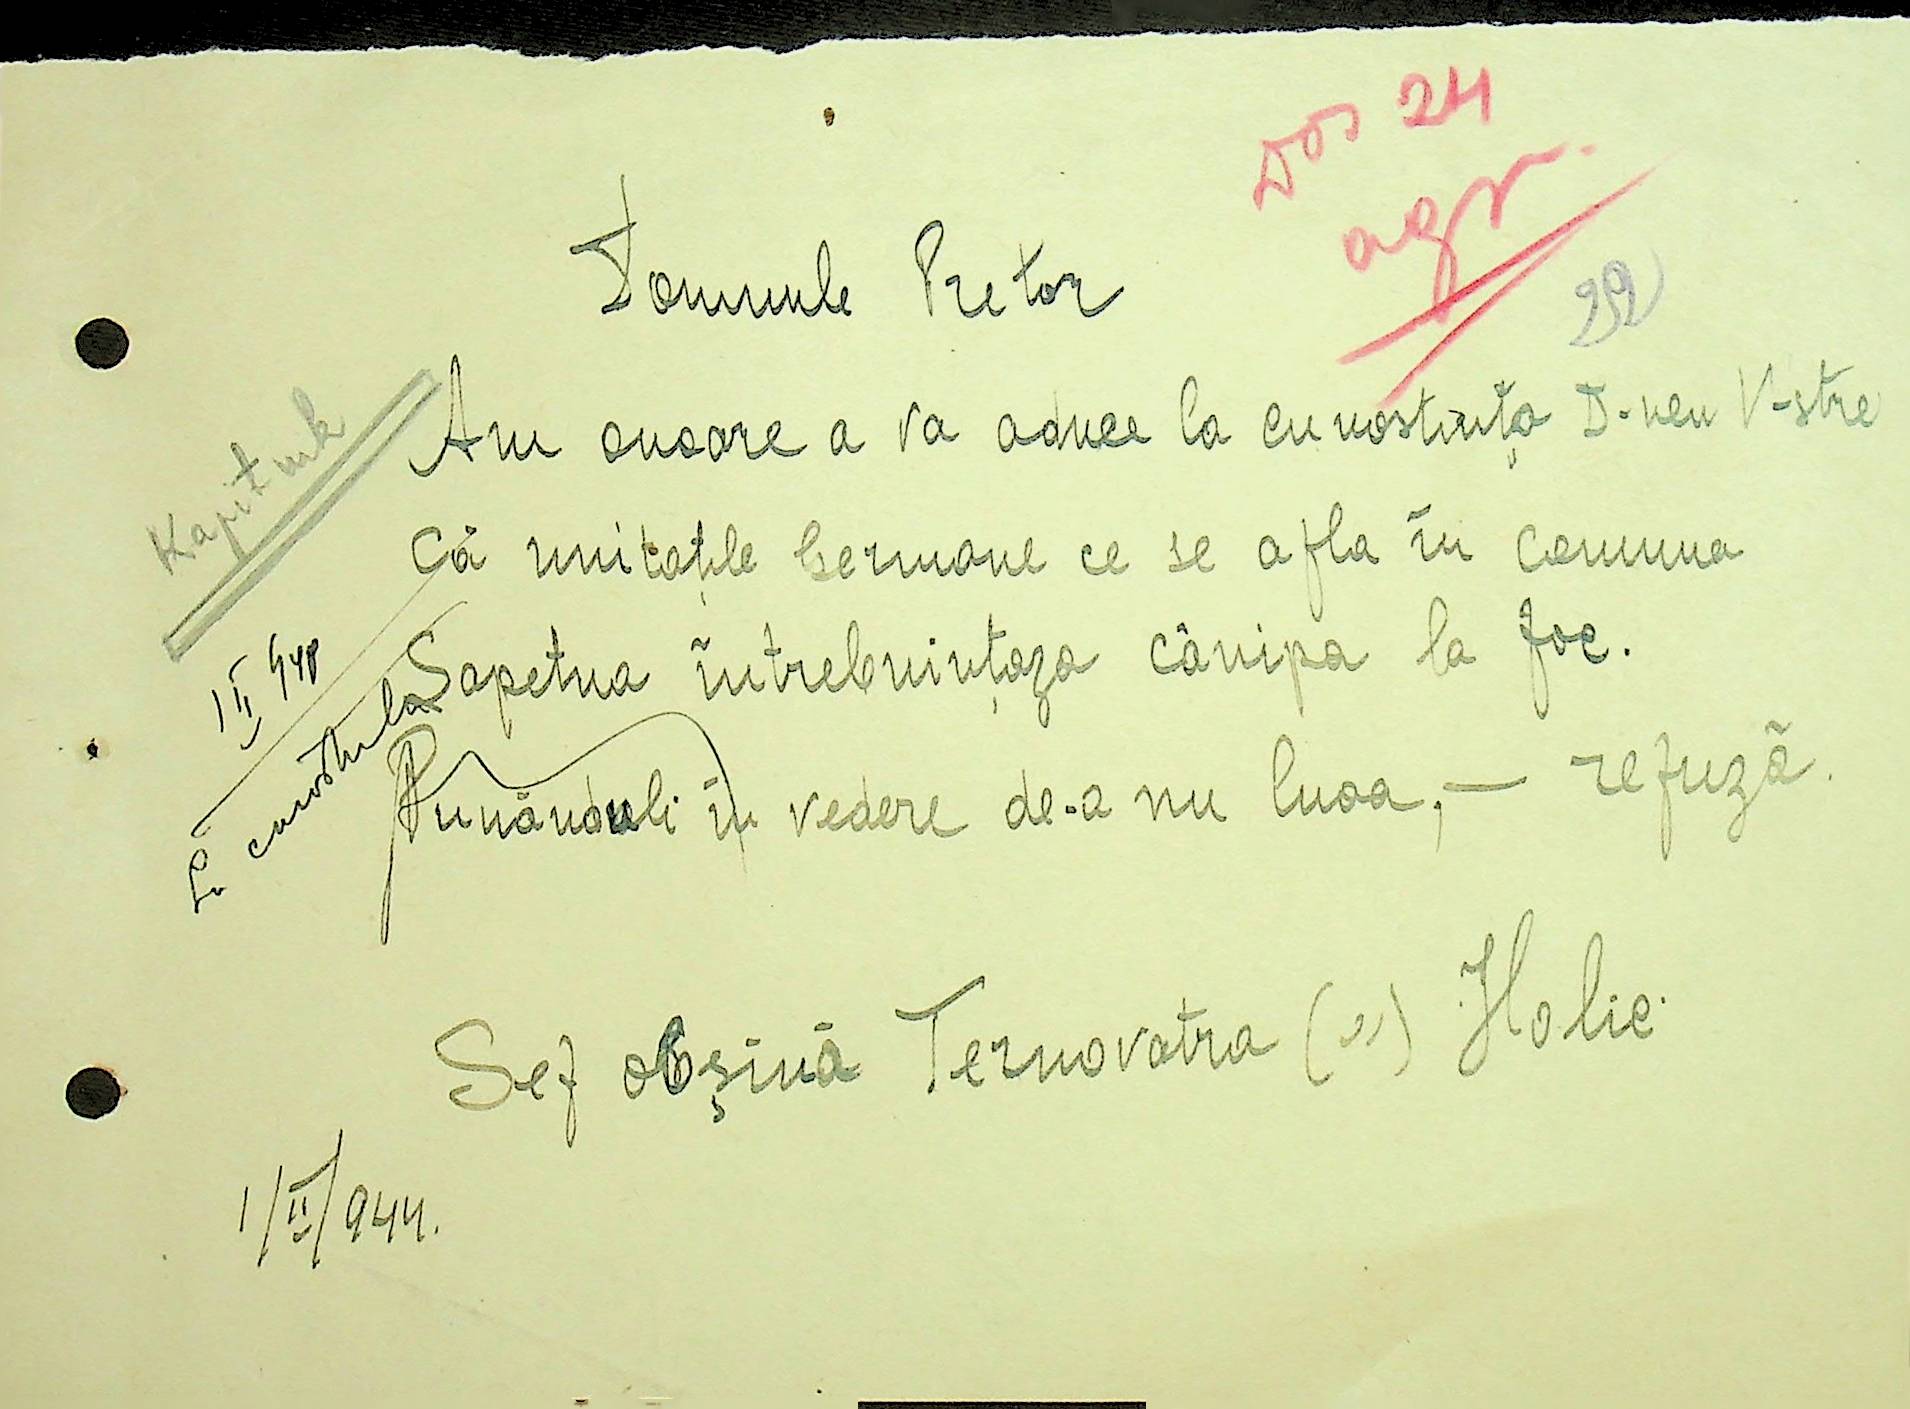 Dos 24
agr.
Domnule Pretor
Am onoare a va aduce la cunostința D-neu V-stre
Că unitațile Germane ce se afla în comuna
Sapetna întrebuințaza cânipa la foc.
Punânduli în vedere de-a nu luoa, — refuză.
Sef obșină Ternovatra (") Holic
1/II/944.
1 II
La